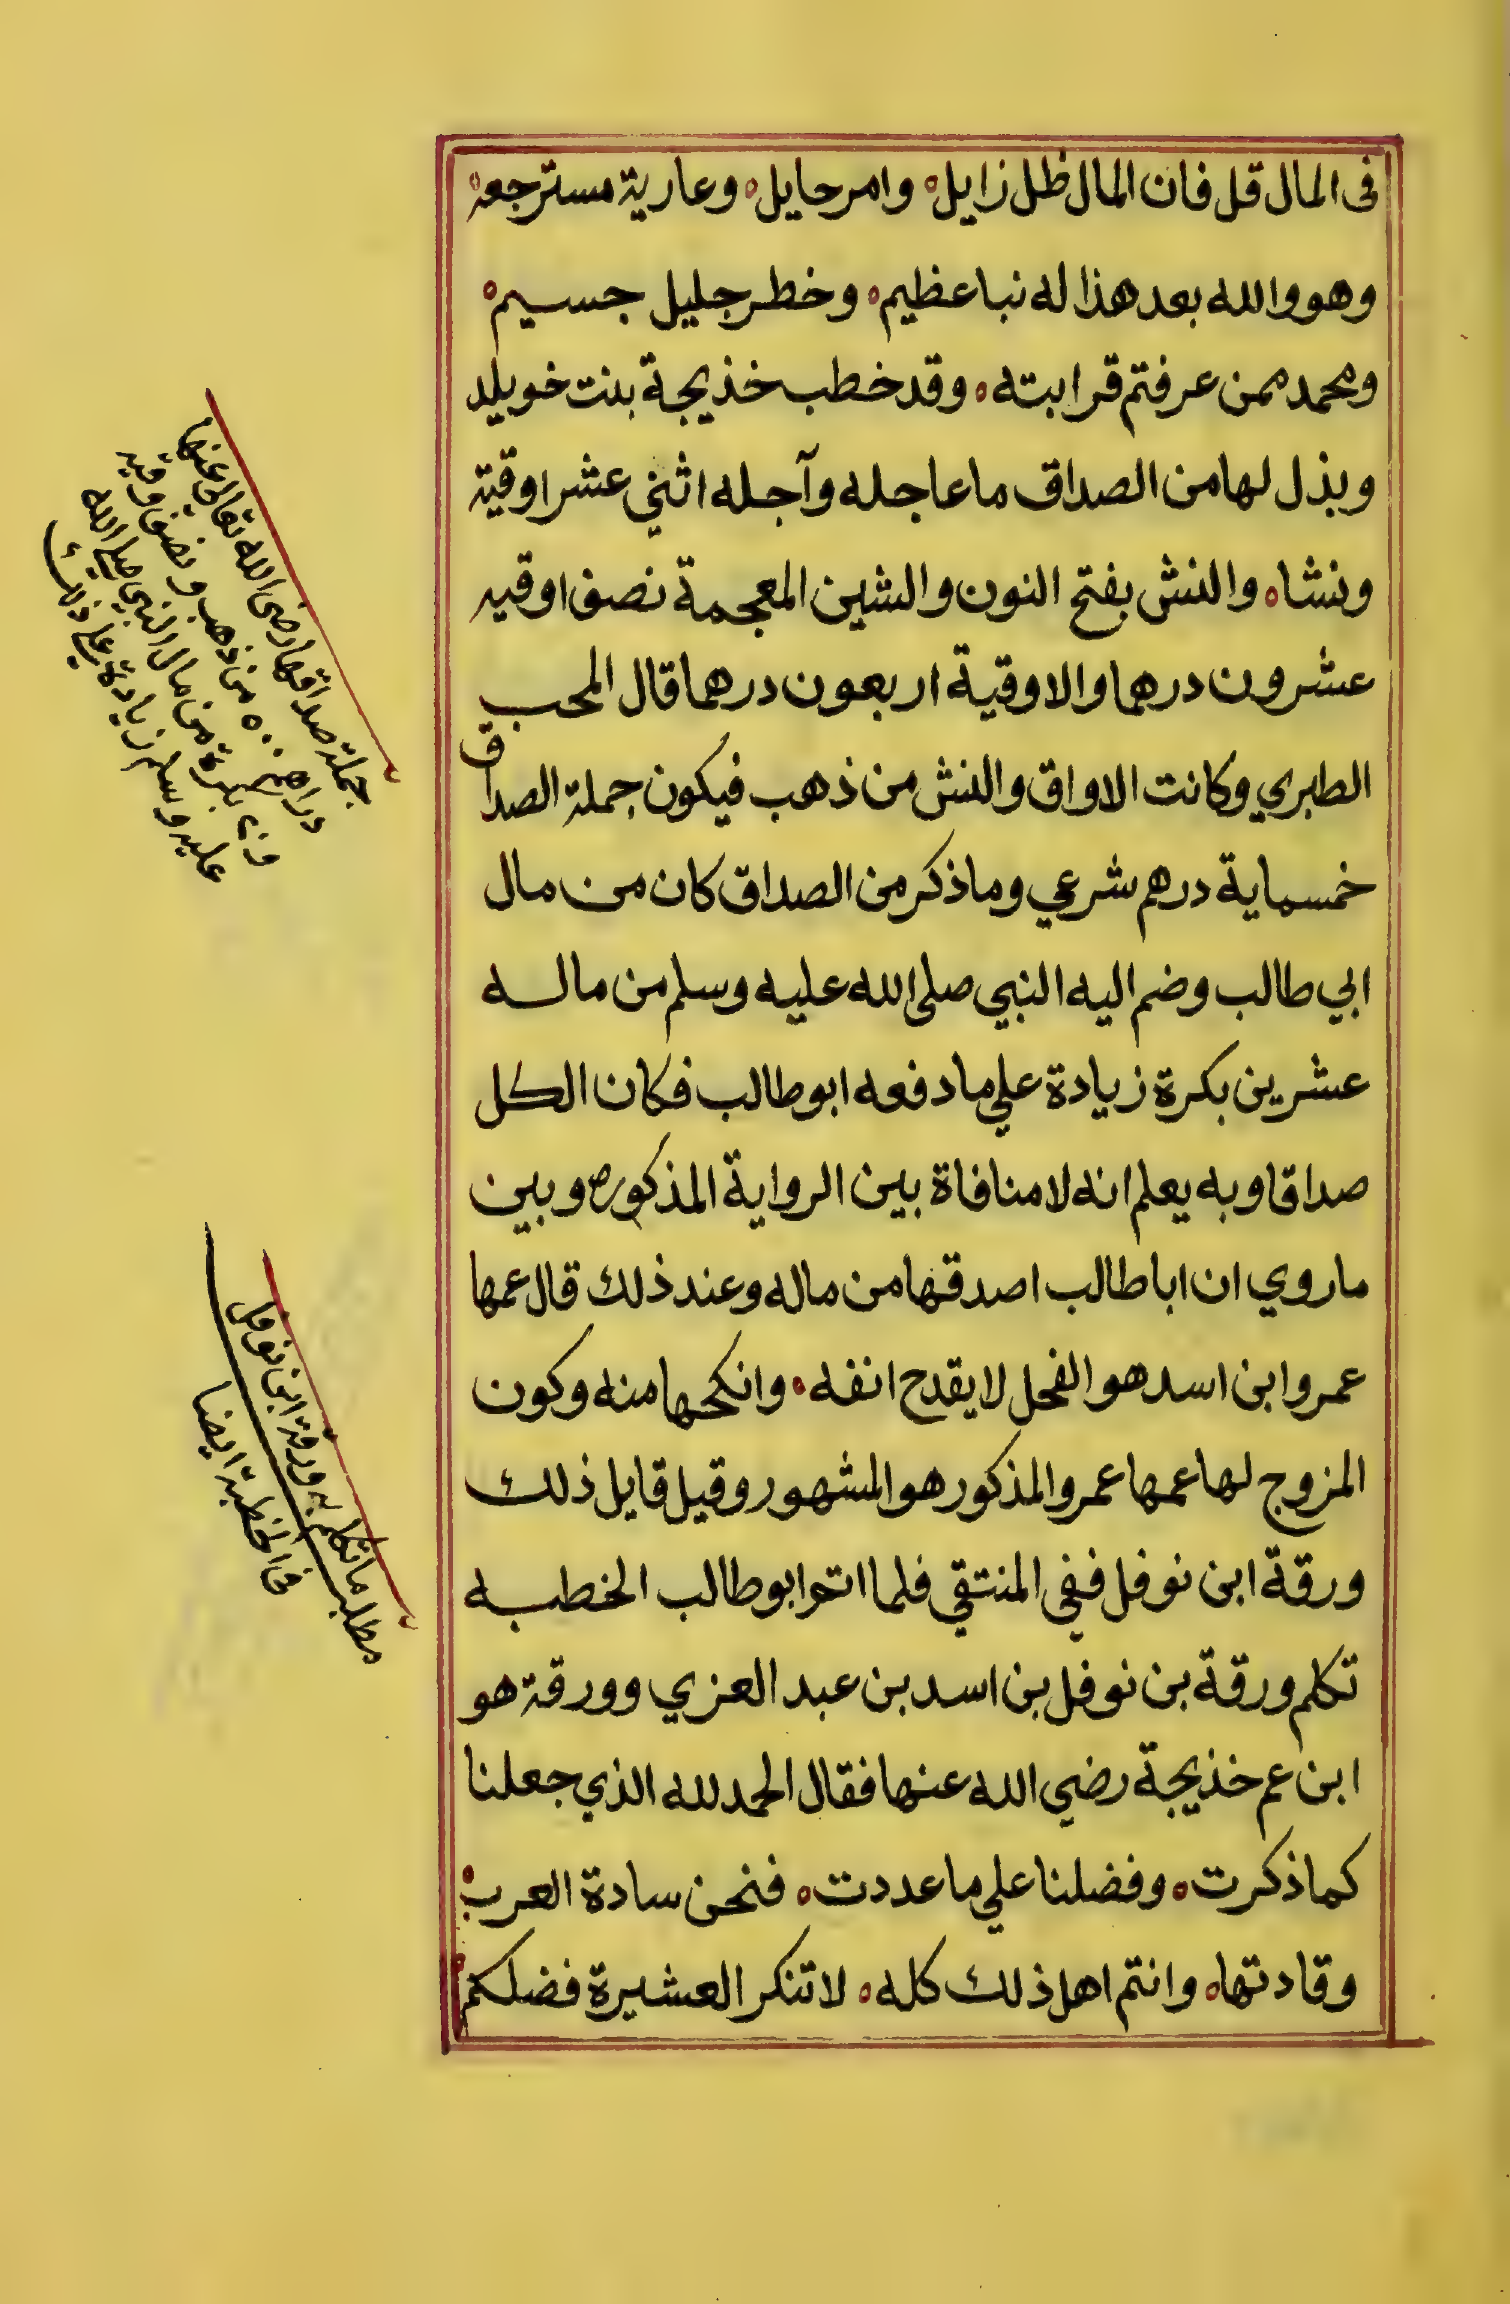 فى المال قل فان المال ظل زايل ه وامر حايل ه وعارية مسترجعة ه
وهو والله بعد هذا له نبا عظيم ه وخطر جليل جسيم ه
ومحمد ممن عرفتم قرابته ه وقد خطب خذيجة بنت خويلد
وبذل لها من الصداق ما عاجله وآجله اثني عشر اوقية
ونشا ه والنش بفتح النون والشين المعجمة نصف اوقيه
عشرون درهما والاوقية اربعون درهما قال المحب
الطبري وكانت الاواق والنش من ذهب فيكون جملة الصداق
خمسماية درهم شرعي وما ذكر من الصداق كان من مال
ابي طالب وضم اليه النبي صلى الله عليه وسلم من ماله
عشرين بكرة زيادة علي ما دفعه ابو طالب فكان الكل
صداقا وبه يعلم انه لا منافاة بين الرواية المذكوره وبين
ما روي ان ابا طالب اصدقها من ماله وعند ذلك قال عمها
عمرو ابن اسد هو الفحل لا يقدح انفه ه وانكحها منه وكون
المزوج لها عمها عمرو المذكور هو المشهور وقيل قايل ذلك
ورقة ابن نوفل ففي المنتقي فلما اتم ابو طالب الخطبه
تكلم ورقة بن نوفل بن اسد بن عبد العزي وورقة هو
ابن عم خذيجة رضي الله عنها فقال الحمد لله الذي جعلنا
كما ذكرت ه وفضلنا علي ما عددت ه فنحن سادة العرب ه
وقادتها ه وانتم اهل ذلك كله ه لا تنكر العشيرة فضلكم
جملة صداقها رضى الله تعالى عنها
دراهم ٥٠٠ من ذهب ونصف اوقيه
بكرة من مال النبي صلي الله
عليه وسلم زيادة علي ذلك
مطلب ما تكلم به ورقة ابن نوفل
فى الخطبة ايضا